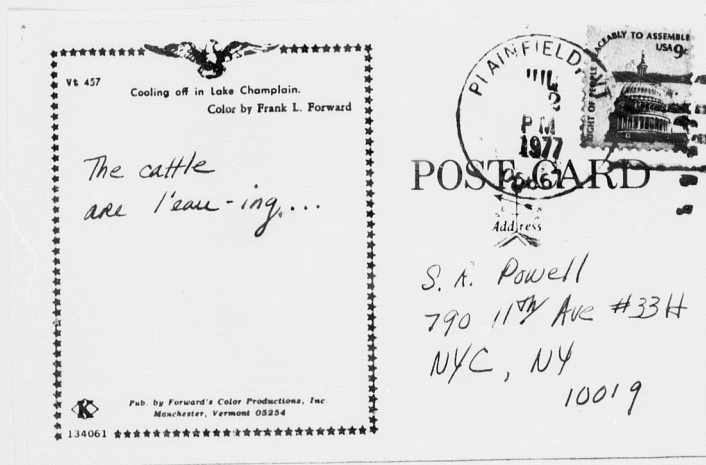 Vt 457
Cooling off in Lake Champlain.
Color by Frank L. Forward
The cattle
are l'eau-ing....
K
Pub. by Forward's Color Productions, Inc.
Manchester, Vermont 05254
134061
PLAINFIELD,
JUL
2
PM
1977
05667
PEACEABLY TO ASSEMBLE
USA 9c
RIGHT OF PEOPLE
POST CARD
Address
S. R. Powell
790 11TH Ave #33H
NYC, NY
10019